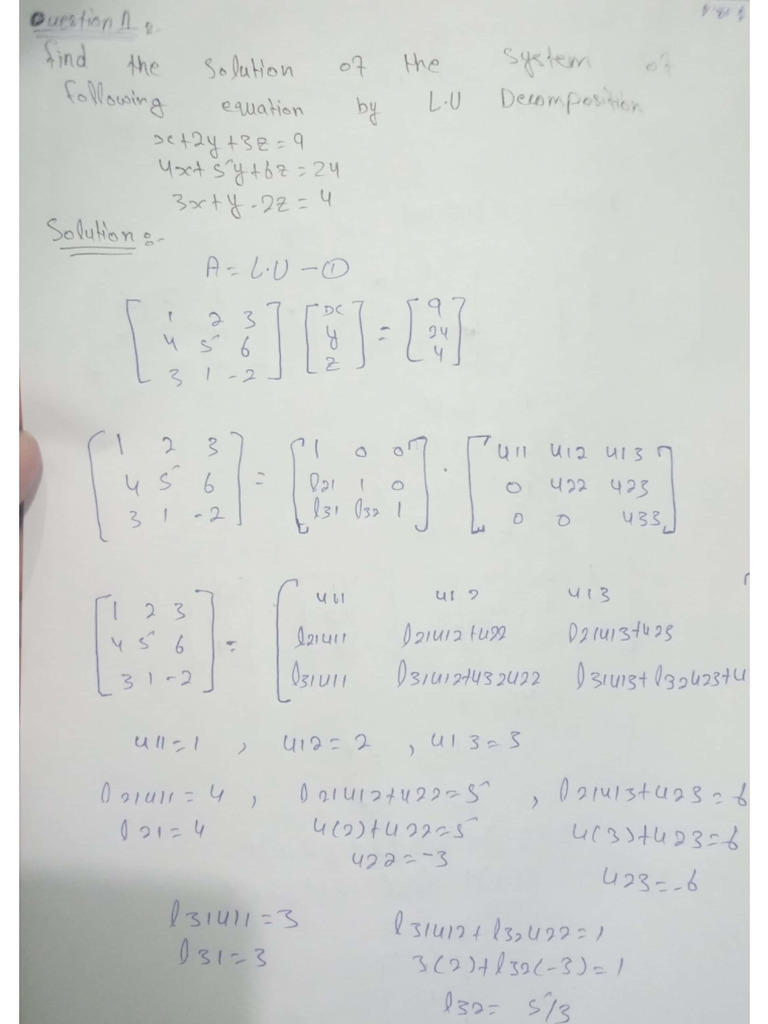 Question 1:
find the Solution of the System of
following equation by L.U Decomposition
x+2y+3z=9
4x+5y+6z=24
3x+y-2z=4
Solution:-
A=L.U-①
[1 2 3] [x] = [9]
[4 5 6] [y] [24]
[3 1 -2] [z] [4]
[1 2 3] = [1 0 0] . [u11 u12 u13]
[4 5 6] [l21 1 0] [0 u22 u23]
[3 1 -2] [l31 l32 1] [0 0 u33]
[1 2 3] = [u11 u12 u13
[4 5 6] [l21u11 l21u12+u22 l21u13+u23
[3 1 -2] [l31u11 l31u12+u32u22 l31u13+l32u23+u
u11=1, u12=2, u13=3
l21u11=4, l21u12+u22=5, l21u13+u23=6
l21=4 4(2)+u22=5 4(3)+u23=6
u22=-3 u23=-6
l31u11=3 l31u12+l32u22=1
l31=3 3(2)+l32(-3)=1
l32=5/3